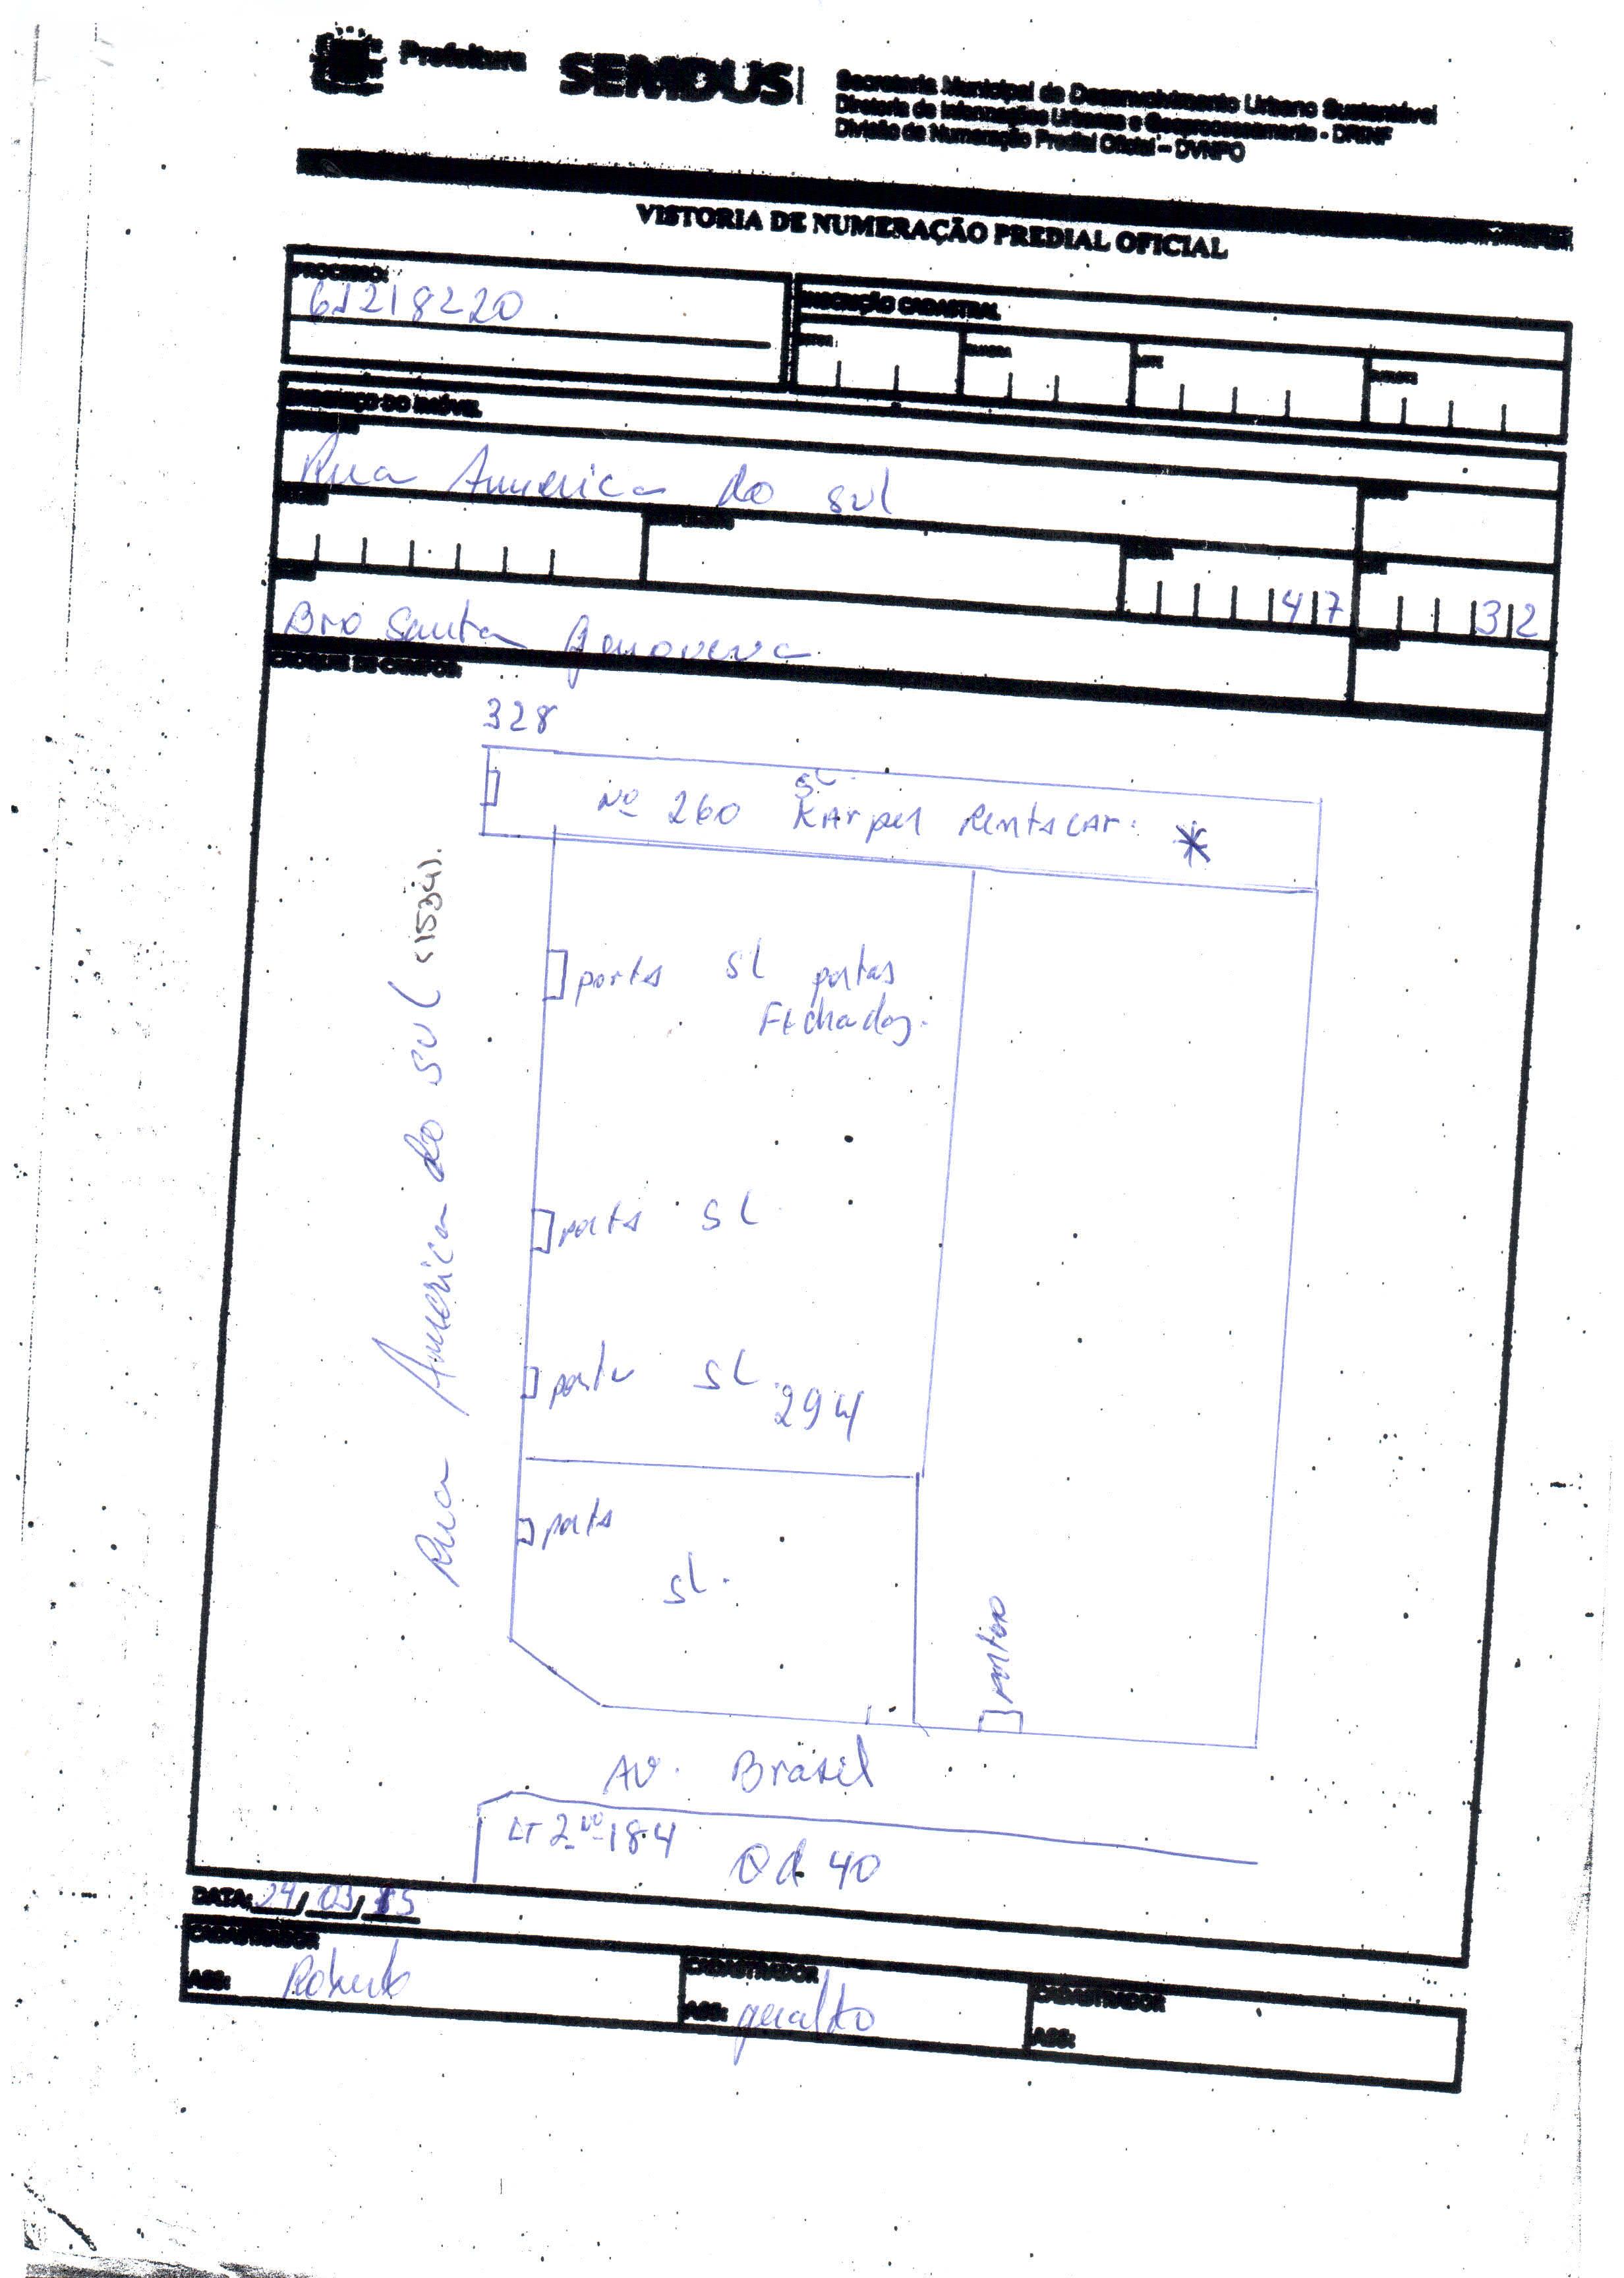 Prefeitura
SEMDUS
Secretaria Municipal de Desenvolvimento Urbano Sustentável
Diretoria de Informações Urbanas e Geoprocessamento - DRINF
Divisão de Numeração Predial Oficial – DVNPO
VISTORIA DE NUMERAÇÃO PREDIAL OFICIAL
PROCESSO:
61218220
INSCRIÇÃO CADASTRAL
QUADRA
LOTE
ENDEREÇO DO IMÓVEL
Rua America do sul
47
32
Bro Santa Genoveva
CROQUI DE CAMPO:
328
Nº 260 SL. Karpel Rentacar. *
Rua America do sul (1534).
porta SL portas
Fechadas.
porta SL
porta SL
294
porta
SL.
portão
AV. Brasil
LT 2 Nº 184
Qd 40
DATA: 24/03/15
CADASTRADOR
ASS: Roberto
CADASTRADOR
ASS: geraldo
CADASTRADOR
ASS: